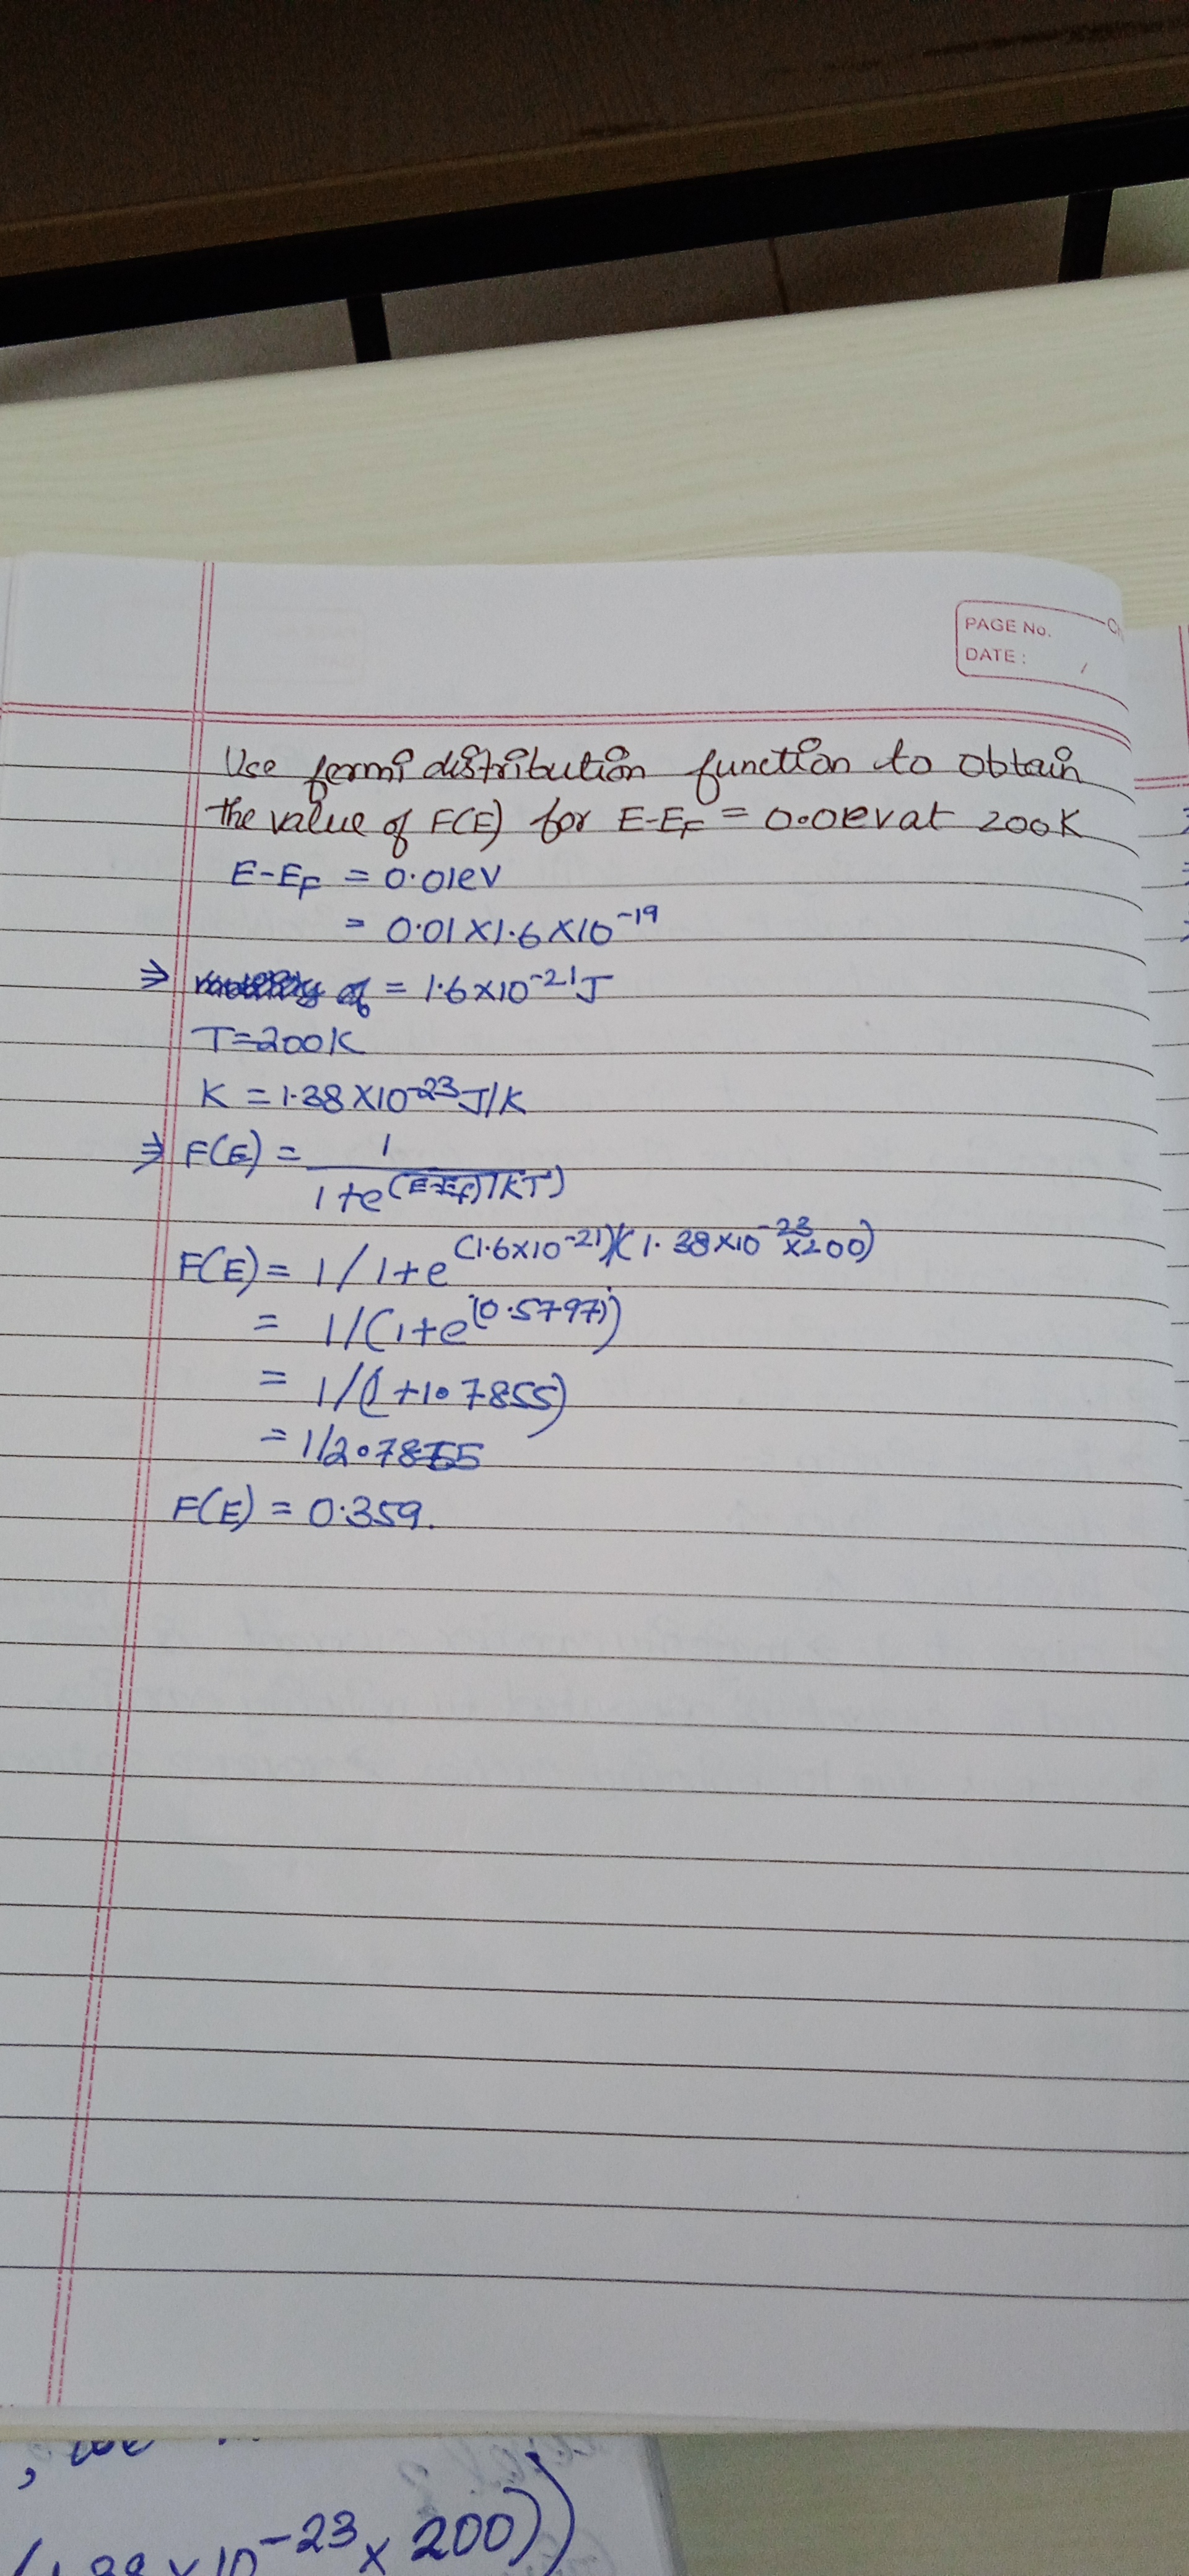 PAGE No.
DATE: /
Use fermi distribution function to obtain
the value of F(E) for E-EF = 0.01ev at 200K
E-EF = 0.01eV
= 0.01×1.6×10-19
⇒ = 1.6×10-21J
T=200K
K = 1.38×10-23J/K
⇒ F(E) = 1
1+e(E-Ef)/KT)
F(E) = 1/1+e(1.6×10-21)(1.38×10-23×200)
= 1/(1+e(0.5797))
= 1/(1+1.7855)
= 1/2.7855
F(E) = 0.359.
10-23×200))